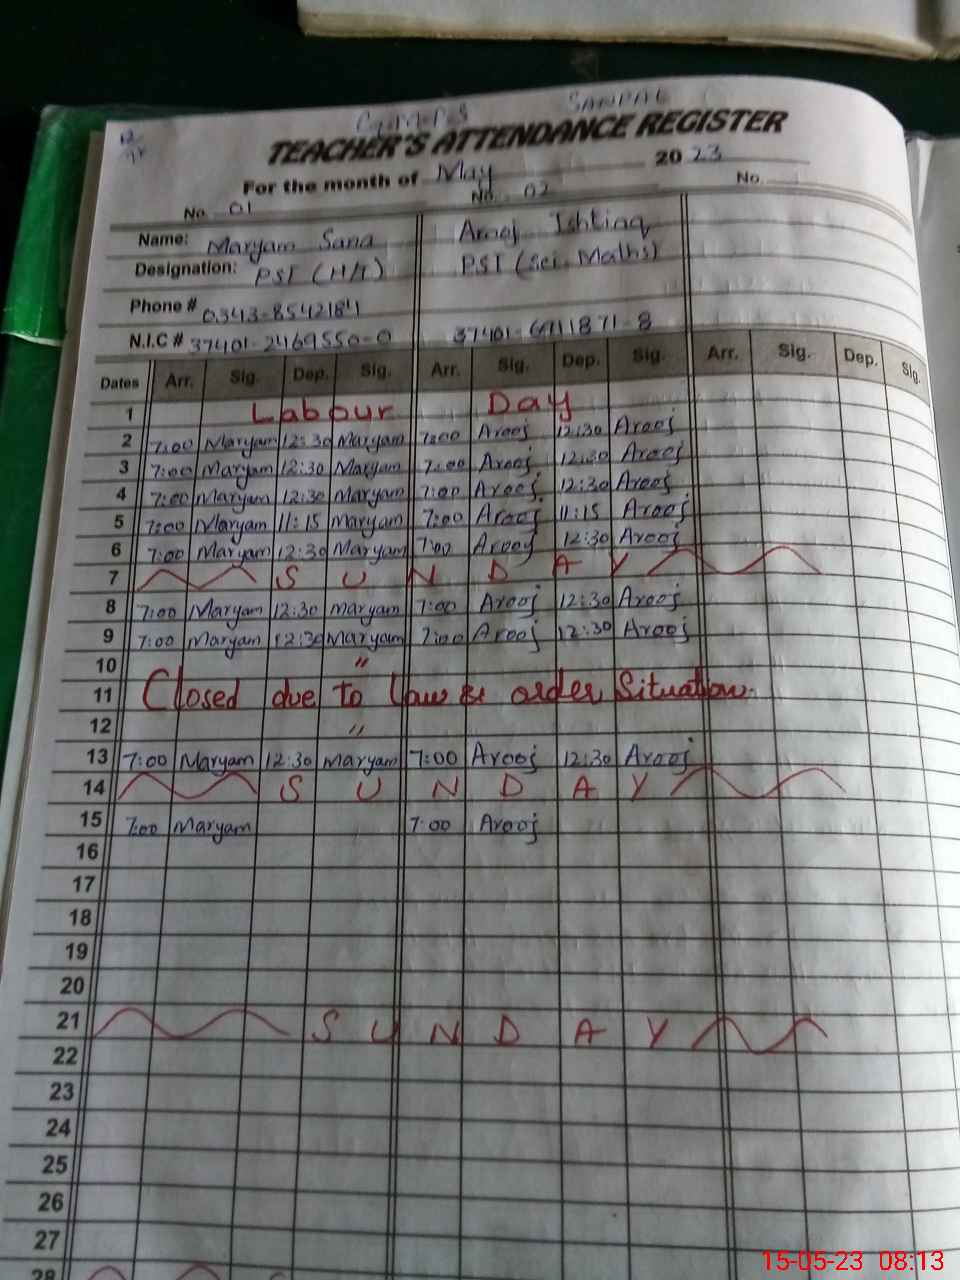 SANPAL
TEACHER'S ATTENDANCE REGISTER
For the month of May 2023
No. 01 No. 02 No.
Name: Maryam Sana Arooj Ishtiaq
Designation: PST (H/T) PST (Sci. Maths)
Phone # 0343-8542184
N.I.C # 37401-2469550-0 37401-6911871-8
Dates Arr. Sig. Dep. Sig. Arr. Sig. Dep. Sig. Arr. Sig. Dep. Sig.
1 Labour Day
2 7:00 Maryam 12:30 Maryam 7:00 Arooj 12:30 Arooj
3 7:00 Maryam 12:30 Maryam 7:00 Arooj 12:30 Arooj
4 7:00 Maryam 12:30 Maryam 7:00 Arooj 12:30 Arooj
5 7:00 Maryam 11:15 Maryam 7:00 Arooj 11:15 Arooj
6 7:00 Maryam 12:30 Maryam 7:00 Arooj 12:30 Arooj
7 SUNDAY
8 7:00 Maryam 12:30 Maryam 7:00 Arooj 12:30 Arooj
9 7:00 Maryam 12:30 Maryam 7:00 Arooj 12:30 Arooj
10 "
11 Closed due to law & order Situation.
12 "
13 7:00 Maryam 12:30 Maryam 7:00 Arooj 12:30 Arooj
14 SUNDAY
15 7:00 Maryam 7:00 Arooj
16
17
18
19
20
21 SUNDAY
22
23
24
25
26
27
28
15-05-23 08:13